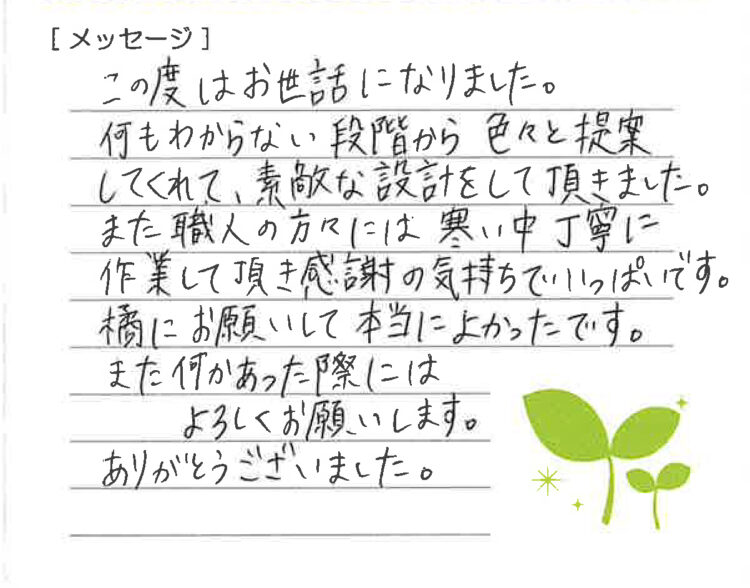 [メッセージ]
この度はお世話になりました。
何もわからない段階から色々と提案
してくれて、素敵な設計をして頂きました。
また職人の方々には寒い中丁寧に
作業して頂き感謝の気持ちでいっぱいです。
橘にお願いして本当によかったです。
また何かあった際には
よろしくお願いします。
ありがとうございました。